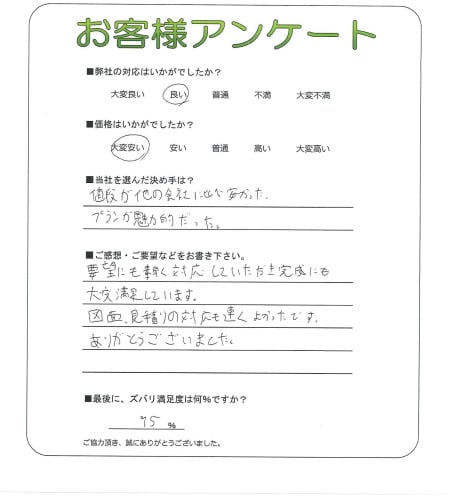 お客様アンケート
■弊社の対応はいかがでしたか？
大変良い 良い 普通 不満 大変不満
■価格はいかがでしたか？
大変安い 安い 普通 高い 大変高い
■当社を選んだ決め手は？
値段が他の会社に比べ安かった.
プランが魅力的だった。
■ご感想・ご要望などをお書き下さい。
要望にも軽く対応していただき完成にも
大変満足しています.
図面、見積りの対応も速くよかったです.
ありがとうございました。
■最後に、ズバリ満足度は何％ですか？
95 %
ご協力頂き、誠にありがとうございました。